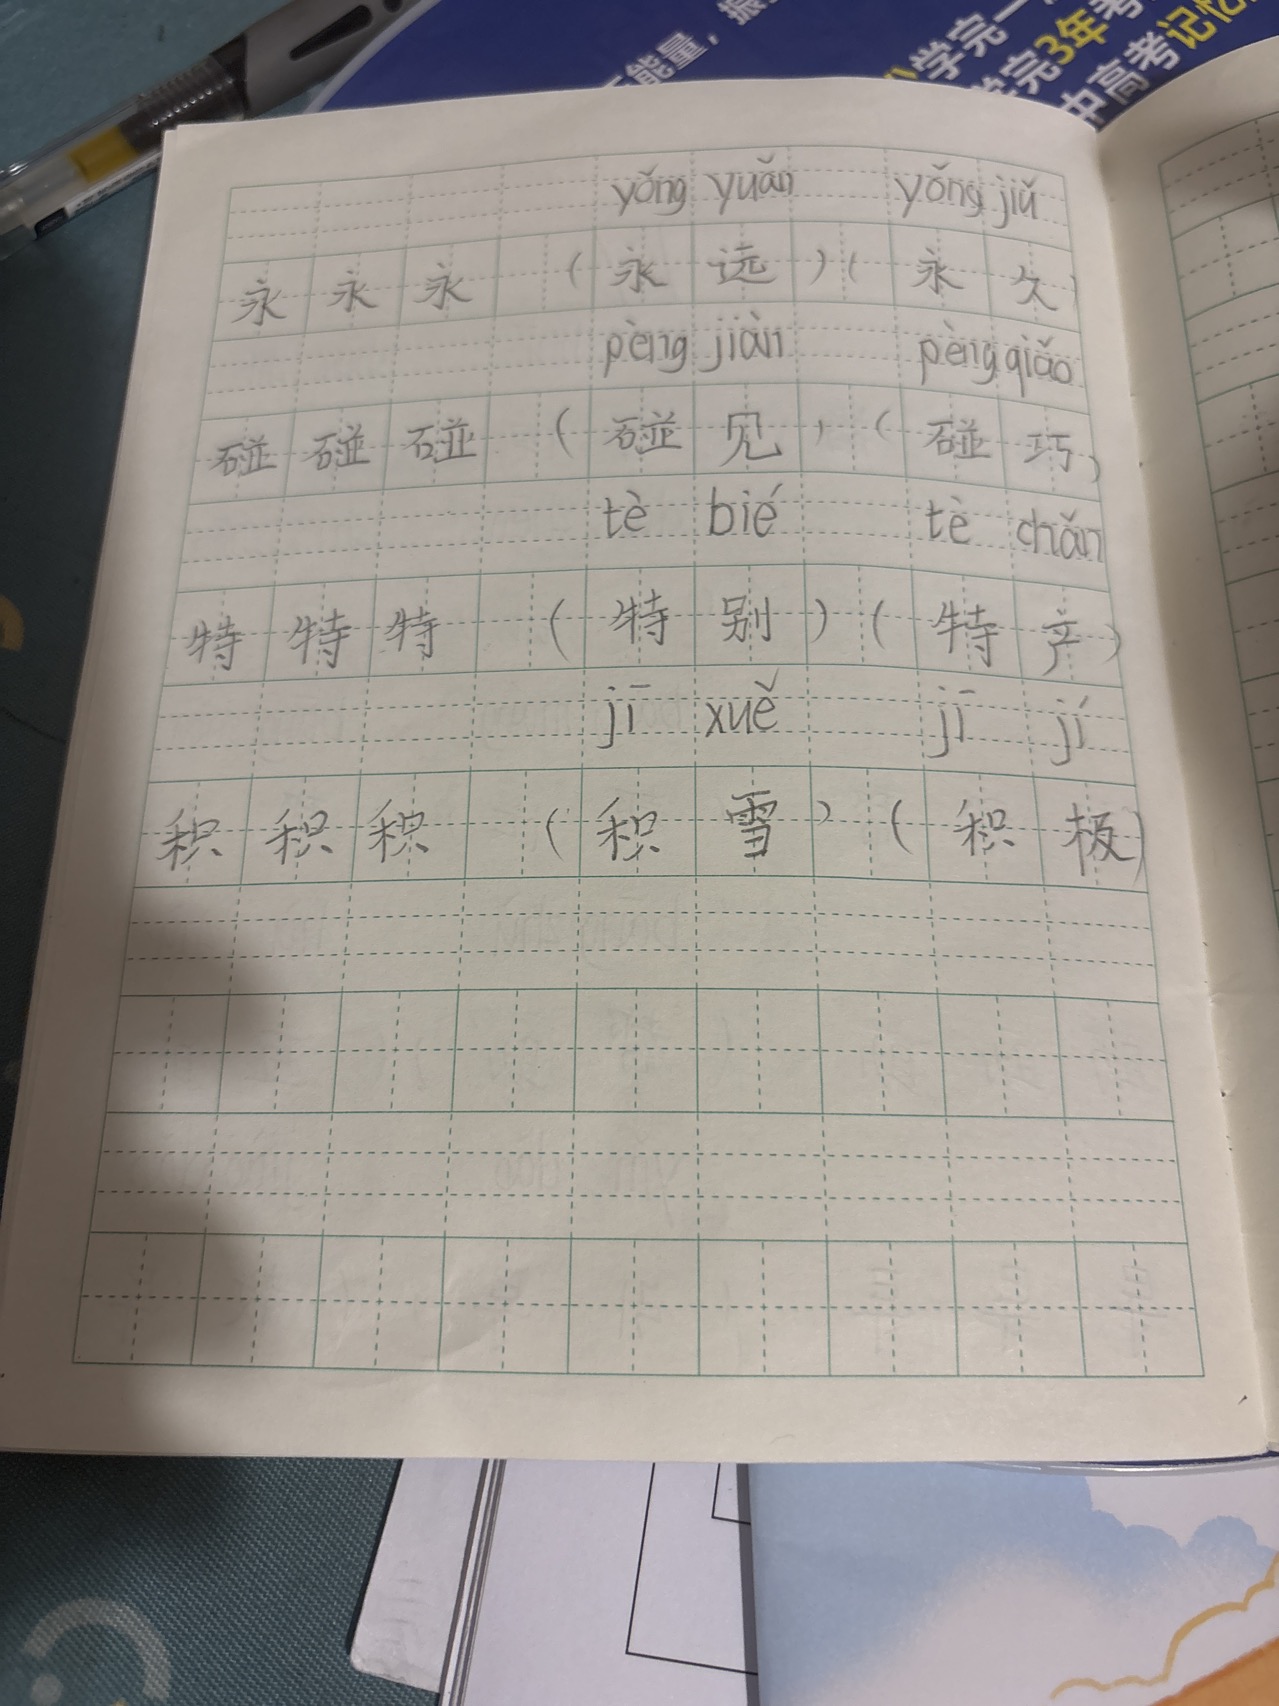 能量，振
学完一
学完3年考
中高考记忆
yǒng yuǎn yǒng jiǔ
永 永 永 （ 永 远 ）（ 永 久 ）
pèng jiàn pèng qiǎo
碰 碰 碰 （ 碰 见 ）（ 碰 巧 ）
tè bié tè chǎn
特 特 特 （ 特 别 ）（ 特 产 ）
jī xuě jī jí
积 积 积 （ 积 雪 ）（ 积 极 ）